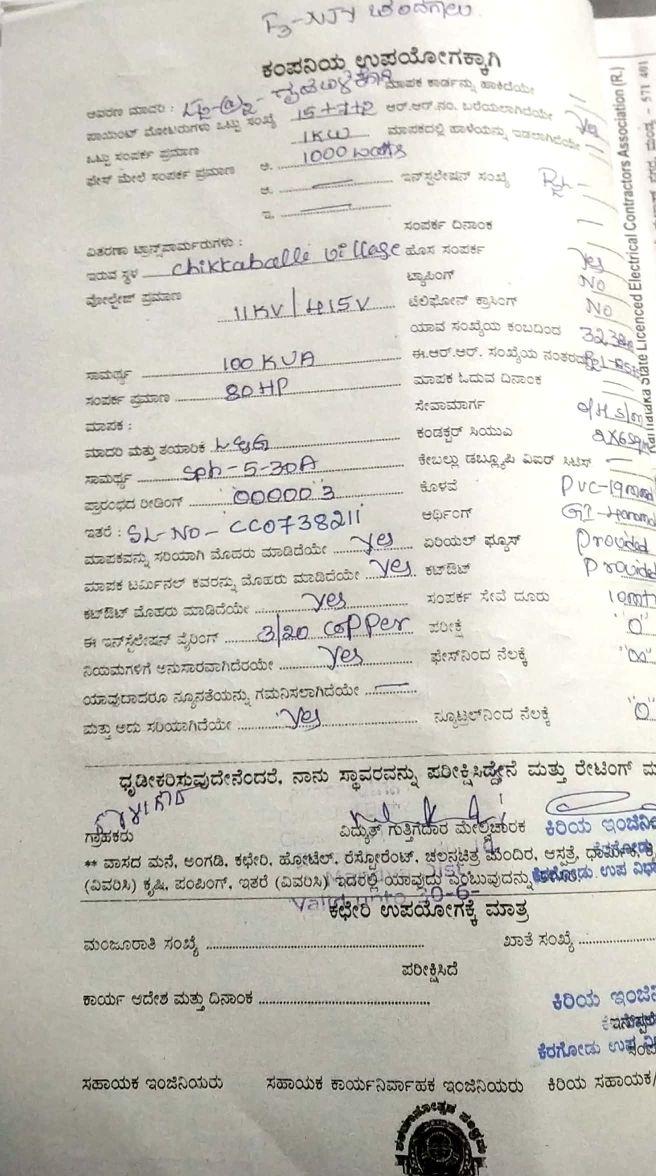 F3-NJY ಚಂದಗಾಲು
ಕಂಪನಿಯ ಉಪಯೋಗಕ್ಕಾಗಿ
ಆವರಣ ಮಾದರಿ : ಮಾಪಕ ಕಾರ್ಡನ್ನು ಹಾಕಿದೆಯೇ
ಪಾಯಿಂಟ್ ಮೋಟರುಗಳು ಒಟ್ಟು ಸಂಖ್ಯೆ 15+7+2 ಆರ್.ಆರ್.ನಂ. ಬರೆಯಲಾಗಿದೆಯೇ Yes
ಒಟ್ಟು ಸಂಪರ್ಕ ಪ್ರಮಾಣ 1KW ಮಾಪಕದಲ್ಲಿ ಹಾಳೆಯನ್ನು ಇಡಲಾಗಿದೆಯೇ
ಫೇಸ್ ಮೇಲೆ ಸಂಪರ್ಕ ಪ್ರಮಾಣ ಆ. 1000 watts
ಆ. ಇನ್‌ಸ್ಟಲೇಷನ್ ಸಂಖ್ಯೆ
ಇ.
ಸಂಪರ್ಕ ದಿನಾಂಕ
ವಿತರಣಾ ಟ್ರಾನ್ಸ್‌ಫಾರ್ಮರುಗಳು :
ಇರುವ ಸ್ಥಳ Chikkaballi village ಹೊಸ ಸಂಪರ್ಕ Yes
ವೋಲ್ಟೇಜ್ ಪ್ರಮಾಣ 11KV/415V ಟ್ಯಾಪಿಂಗ್ No
ಟೆಲಿಫೋನ್ ಕ್ರಾಸಿಂಗ್ No
ಯಾವ ಸಂಖ್ಯೆಯ ಕಂಬದಿಂದ
ಸಾಮರ್ಥ್ಯ 100 KVA ಈ.ಆರ್.ಆರ್. ಸಂಖ್ಯೆಯ ನಂತರದ
ಸಂಪರ್ಕ ಪ್ರಮಾಣ 80HP ಮಾಪಕ ಓದುವ ದಿನಾಂಕ
ಮಾಪಕ : ಸೇವಾಮಾರ್ಗ O/H S/m
ಮಾದರಿ ಮತ್ತು ತಯಾರಿಕೆ L&G ಕಂಡಕ್ಟರ್ ಸಿಯುಎ 2X6Sqm
ಸಾಮರ್ಥ್ಯ Sph-5-30A ಕೇಬಲ್ಲು ಡಬ್ಲ್ಯೂಪಿ ವಿಐಆರ್ ಸಿಟಿಸ್
ಪ್ರಾರಂಭದ ರೀಡಿಂಗ್ 00000 3 ಕೊಳವೆ PVC-19mm
ಇತರೆ : SL-NO-CC0738211 ಆರ್ಥಿಂಗ್
ಮಾಪಕವನ್ನು ಸರಿಯಾಗಿ ಮೊದರು ಮಾಡಿದೆಯೇ Yes ಏರಿಯಲ್ ಫ್ಯೂಸ್ Provided
ಮಾಪಕ ಟರ್ಮಿನಲ್ ಕವರನ್ನು ಮೊಹರು ಮಾಡಿದೆಯೇ Yes ಕಟ್‌ಔಟ್ Provided
ಕಟ್‌ಔಟ್ ಮೊಹರು ಮಾಡಿದೆಯೇ Yes ಸಂಪರ್ಕ ಸೇವೆ ದೂರು 10mt
ಈ ಇನ್‌ಸ್ಟಲೇಷನ್ ವೈರಿಂಗ್ 3/20 Copper ಪರೀಕ್ಷೆ "0"
ನಿಯಮಗಳಿಗೆ ಅನುಸಾರವಾಗಿದೆಯೇ Yes ಫೇಸ್‌ನಿಂದ ನೆಲಕ್ಕೆ "∞"
ಯಾವುದಾದರೂ ನ್ಯೂನತೆಯನ್ನು ಗಮನಿಸಲಾಗಿದೆಯೇ
ಮತ್ತು ಅದು ಸರಿಯಾಗಿದೆಯೇ Yes ನ್ಯೂಟ್ರಲ್‌ನಿಂದ ನೆಲಕ್ಕೆ "0
ಧೃಡೀಕರಿಸುವುದೇನೆಂದರೆ, ನಾನು ಸ್ಥಾವರವನ್ನು ಪರೀಕ್ಷಿಸಿದ್ದೇನೆ ಮತ್ತು ರೇಟಿಂಗ್ ಮ
ಗ್ರಾಹಕರು ವಿದ್ಯುತ್ ಗುತ್ತಿಗೆದಾರ ಮೇಲ್ವಿಚಾರಕ ಕಿರಿಯ ಇಂಜಿನಿ
** ವಾಸದ ಮನೆ, ಅಂಗಡಿ, ಕಛೇರಿ, ಹೋಟೆಲ್, ರೆಸ್ಟೋರೆಂಟ್, ಚಲನಚಿತ್ರ ಮಂದಿರ, ಆಸ್ಪತ್ರೆ, ಧಾರ್ಮಿಕ,
(ವಿವರಿಸಿ) ಕೃಷಿ, ಪಂಪಿಂಗ್, ಇತರೆ (ವಿವರಿಸಿ) ಇದರಲ್ಲಿ ಯಾವುದು ಎಂಬುವುದನ್ನು
ಕೆರಗೋಡು ಉಪ ವಿಭ
Valid upto 30-6-
ಕಛೇರಿ ಉಪಯೋಗಕ್ಕೆ ಮಾತ್ರ
ಮಂಜೂರಾತಿ ಸಂಖ್ಯೆ ಖಾತೆ ಸಂಖ್ಯೆ
ಪರೀಕ್ಷಿಸಿದೆ
ಕಾರ್ಯ ಆದೇಶ ಮತ್ತು ದಿನಾಂಕ ಕಿರಿಯ ಇಂಜಿನಿ
ಕೆರಗೋಡು ಉಪ ವಿ
ಸಹಾಯಕ ಇಂಜಿನಿಯರು ಸಹಾಯಕ ಕಾರ್ಯನಿರ್ವಾಹಕ ಇಂಜಿನಿಯರು ಕಿರಿಯ ಸಹಾಯಕ/
Karnataka State Licenced Electrical Contractors Association (R.)
ನಗರ, ಮಂಡ್ಯ - 571 401